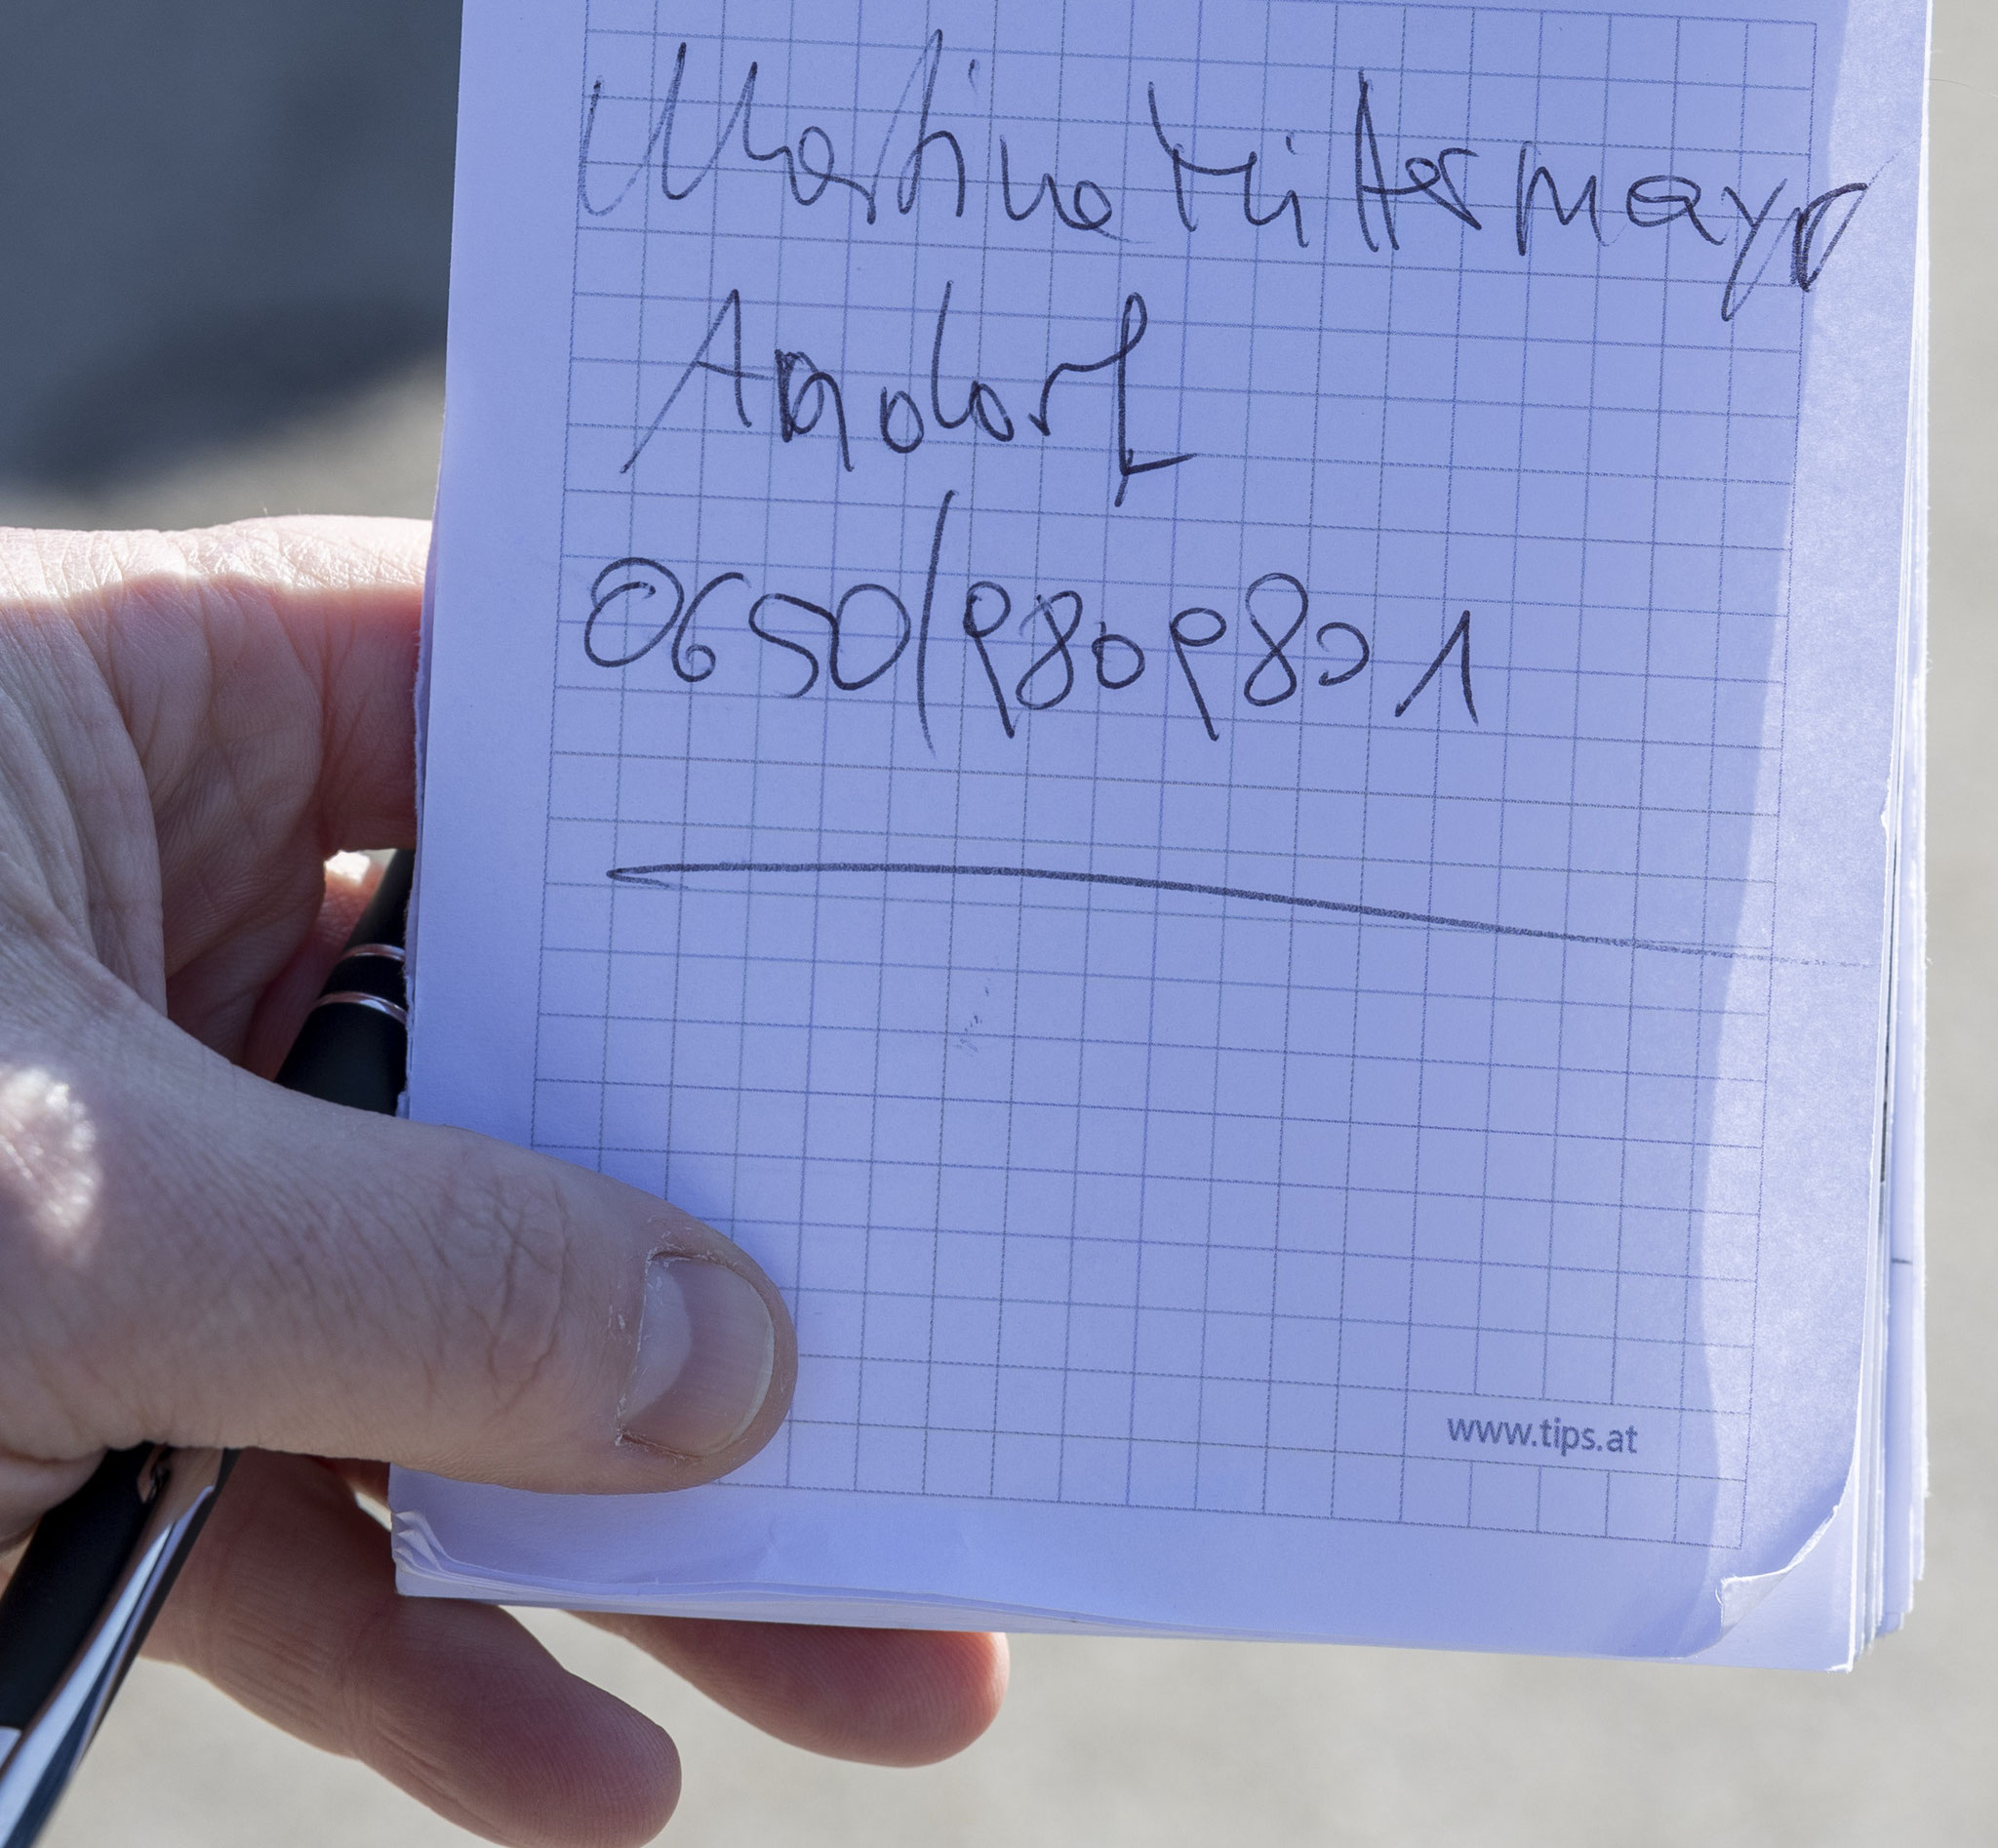 Martina Mittermayr
Andorf
0650/9809801
www.tips.at